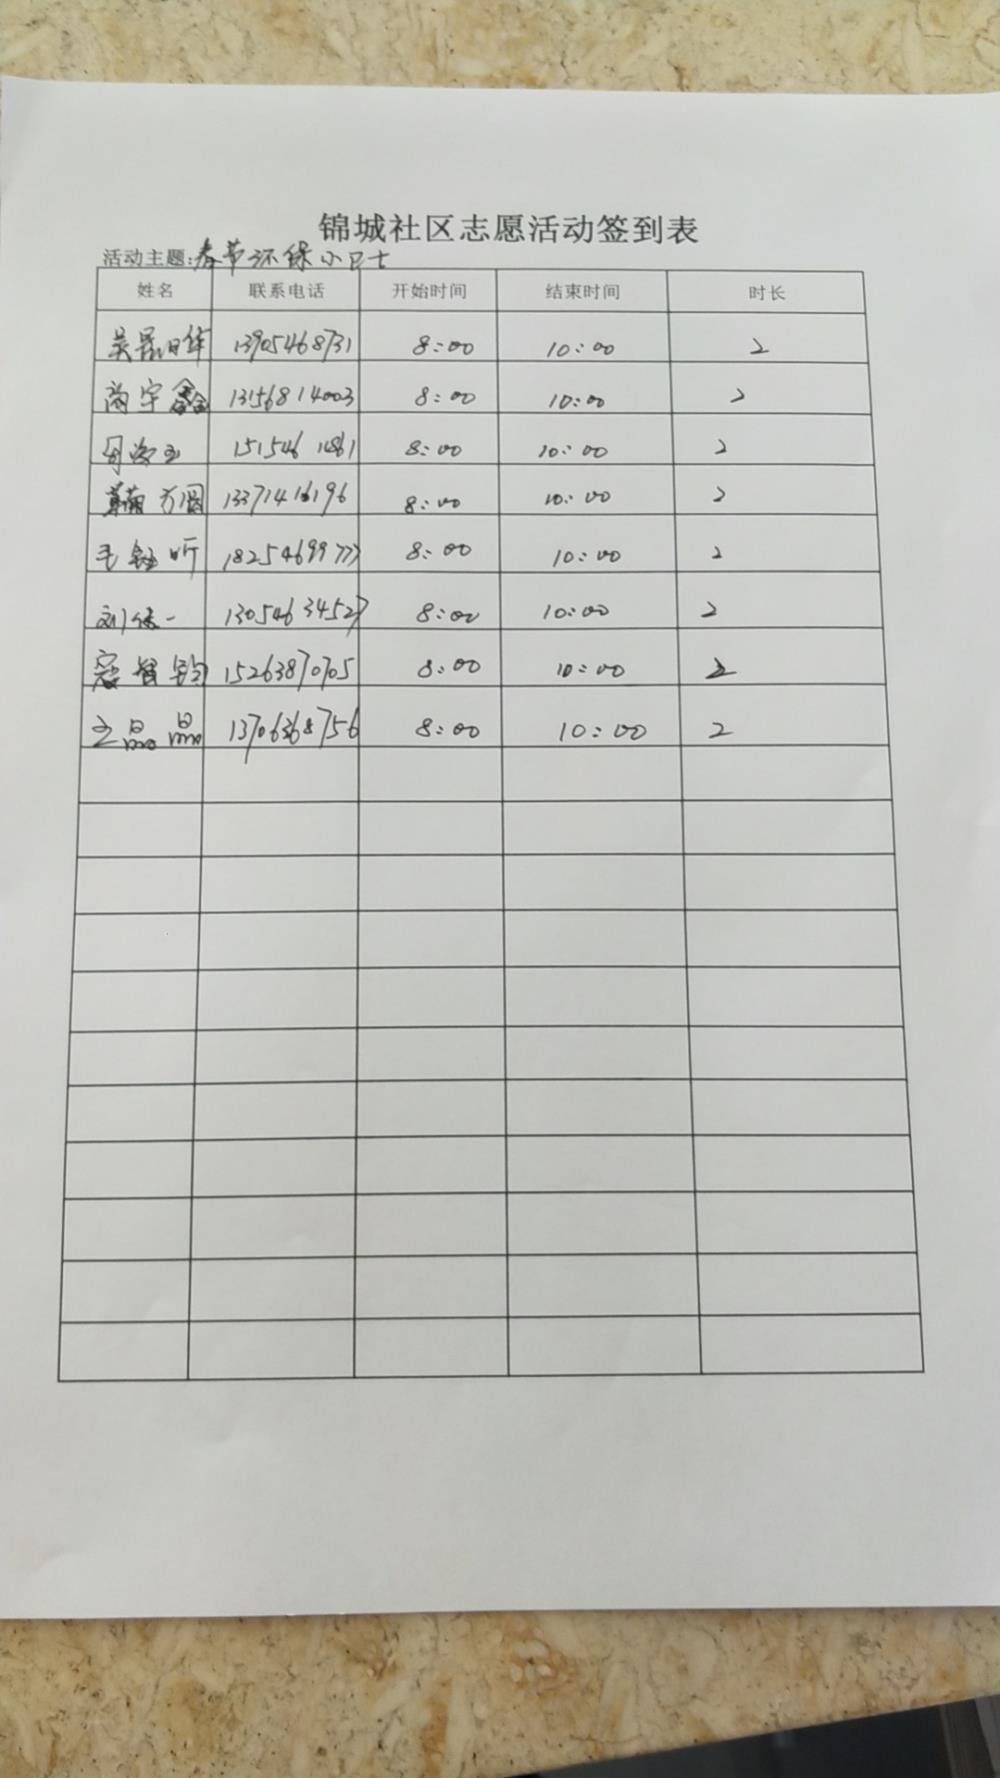 锦城社区志愿活动签到表
活动主题:春节环保小卫士
姓名 联系电话 开始时间 结束时间 时长
13905468731 8:00 10:00 2
尚宇鑫 13156814003 8:00 10:00 2
8:00 10:00 2
万圆 8:00 10:00 2
毛钰昕 18254699777 8:00 10:00 2
刘俊一 13054634527 8:00 10:00 2
寇智钧 15263870705 8:00 10:00 2
王晶晶 13706368756 8:00 10:00 2